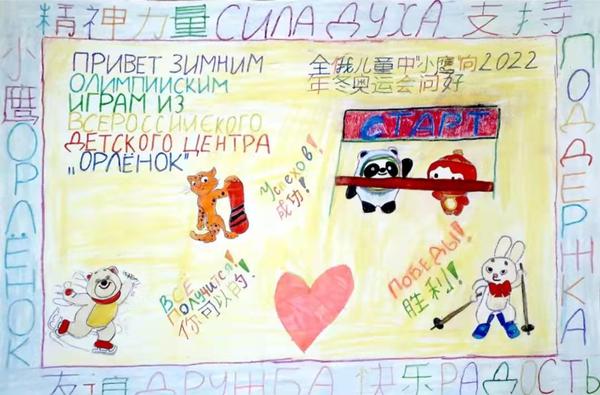 精神力量 СИЛА ДУХА 支持
小鹰 ОРЛЁНОК
ПРИВЕТ ЗИМНИМ
ОЛИМПИЙСКИМ
ИГРАМ ИЗ
ВСЕРОССИЙСКОГО
ДЕТСКОГО ЦЕНТРА
„ОРЛЁНОК"
全俄儿童中"小鹰"向2022
年冬奥运会问好
СТАРТ
Успехов!
成功!
ВСЁ
Получится!
你可以的!
ПОБЕДЫ!
胜利!
ПОДДЕРЖКА
友谊 ДРУЖБА 快乐 РАДОСТЬ